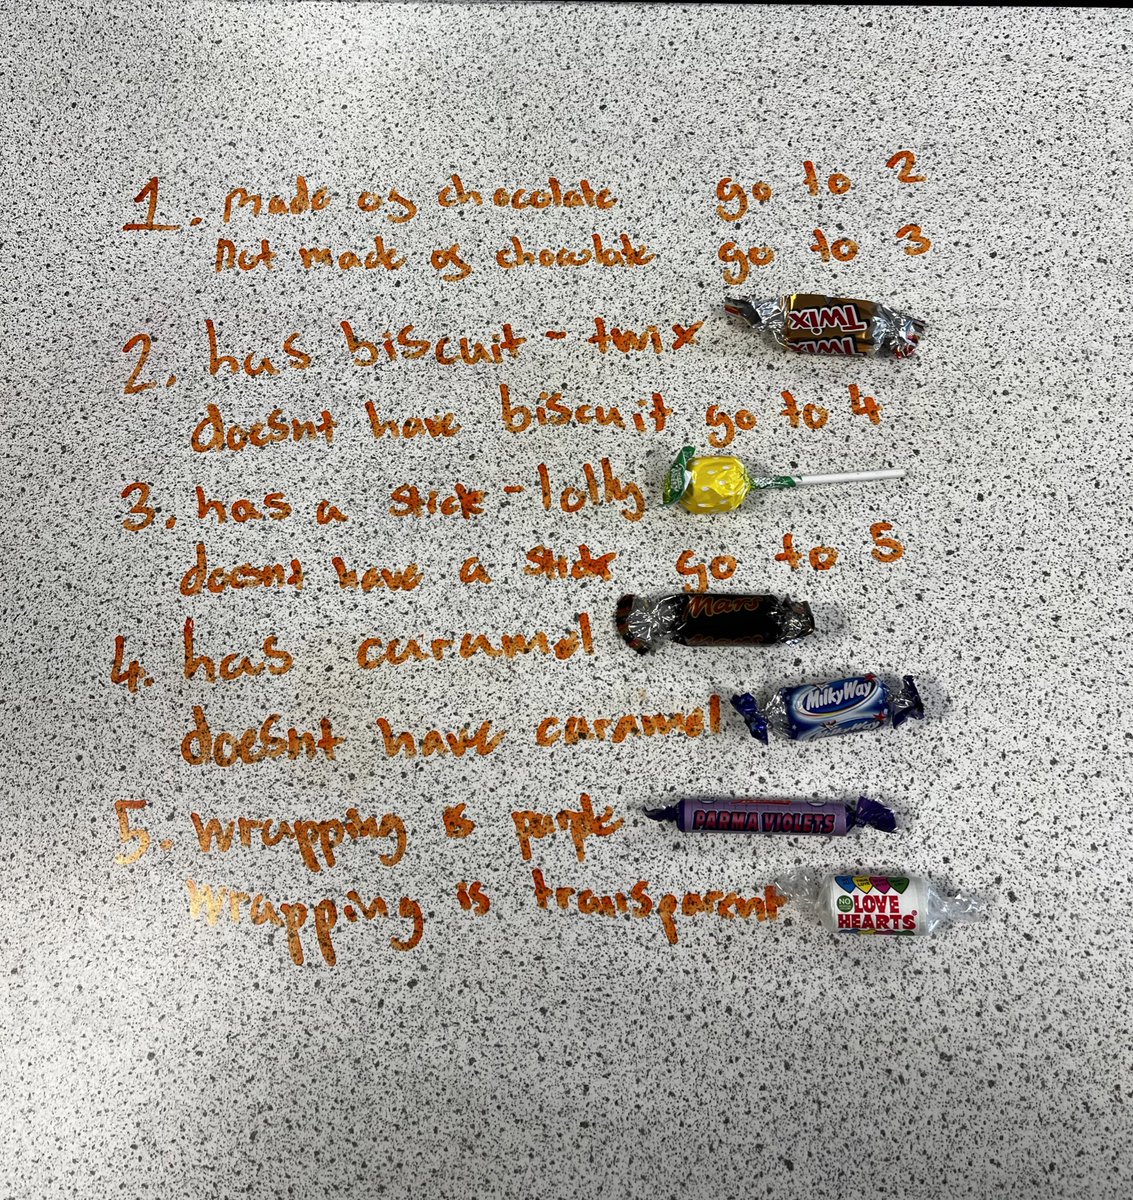 1. made of chocolate go to 2
Not made of chocolate go to 3
2. has biscuit - twix
TWIX
TWIX
doesnt have biscuit go to 4
3. has a stick - lolly
doesnt have a stick go to 5
Mars
Mars
4. has caramel
MilkyWay
doesnt have caramel
5. wrapping is purple
PARMA VIOLETS
wrapping is transparent
NO
LOVE
HEARTS